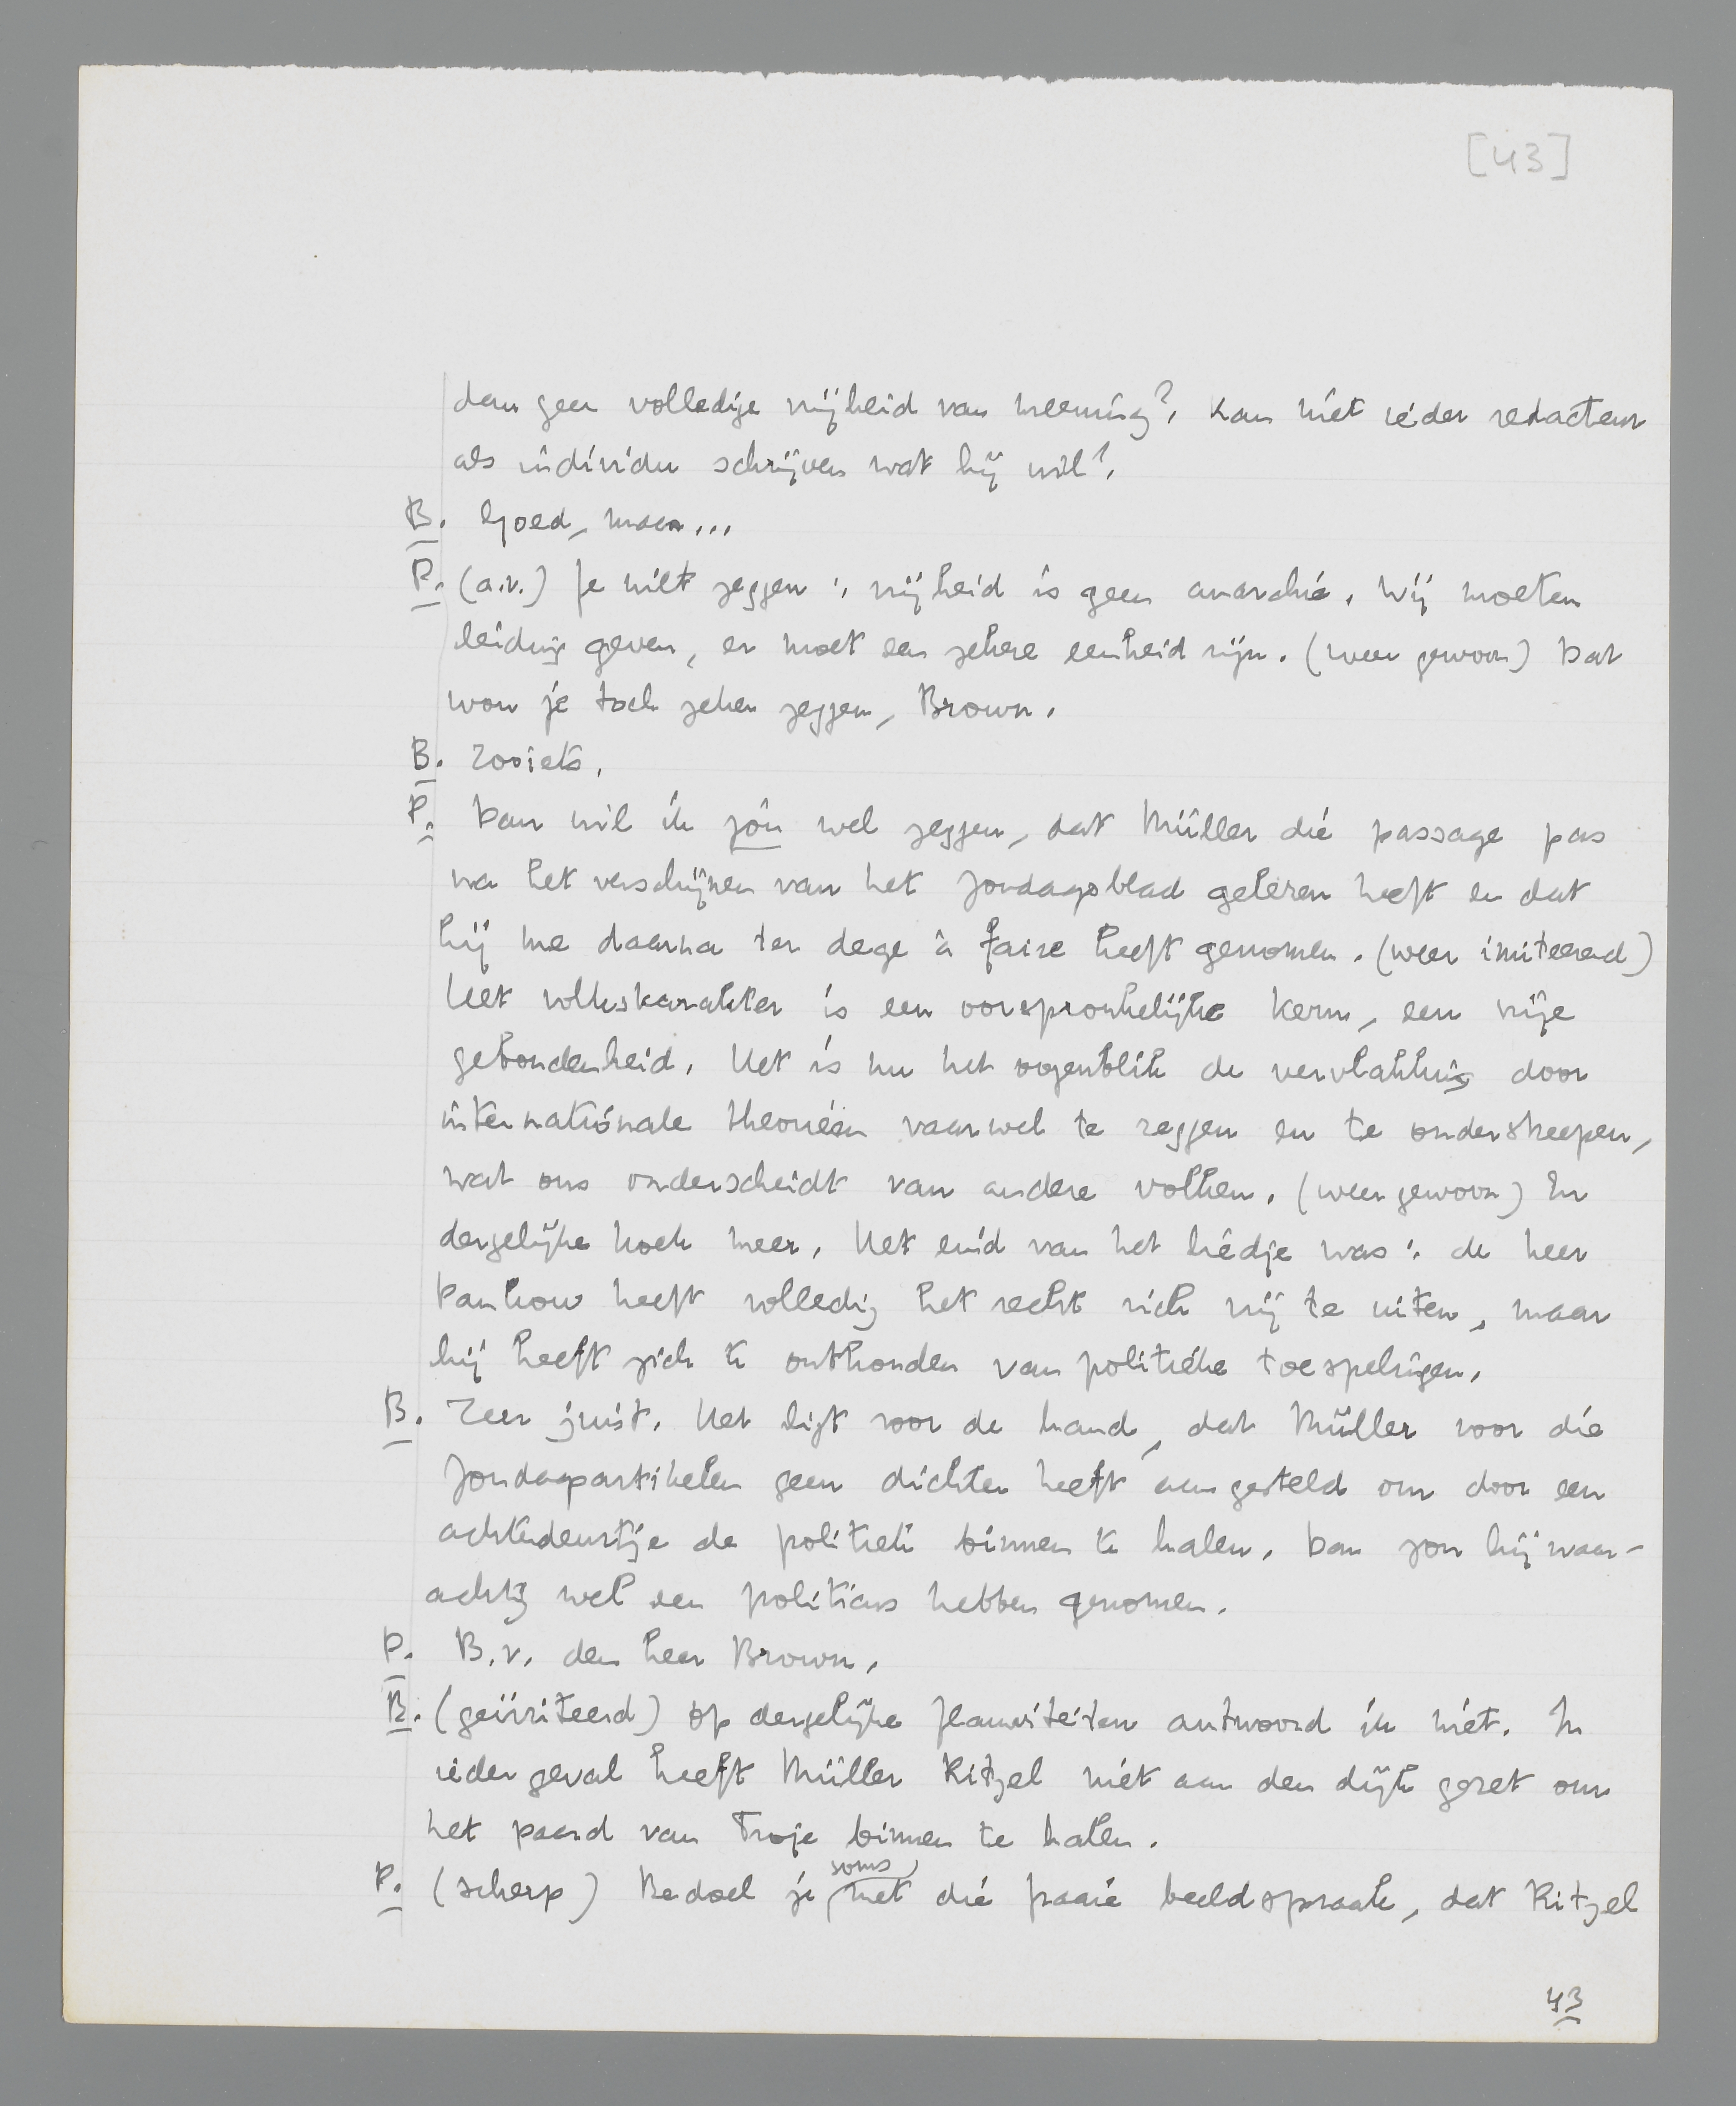 [43]
dan geen volledige vrijheid van meening? Kan niet ieder redacteur
als individu schrijven wat hij wil?
B. Goed, maar...
D. (a.v.) Je wilt zeggen: vrijheid is geen anarchie. Wij moeten
leiding geven, er moet een zekere eenheid zijn. (weer gewoon) Dat
wou je toch zeker zeggen, Brown.
B. Zooiets.
D. Dan wil ik jou wel zeggen, dat Müller die passage pas
na het verschijnen van het Zondagsblad gelezen heeft en dat
hij me daarna ter dege à faire heeft genomen. (weer imiteerend)
Het volkskarakter is een oorspronkelijke kern, een vrije
gebondenheid. Het is nu het oogenblik de vervlakking door
internationale theorieën vaarwel te zeggen en te onderstreepen,
wat ons onderscheidt van andere volken. (weer gewoon) En
dergelijke koek meer. Het eind van het liedje was: de heer
Dankow heeft volledig het recht zich vrij te uiten, maar
hij heeft zich te onthouden van politieke toespelingen.
B. Zeer juist. Het ligt voor de hand, dat Müller voor die
Zondagartikelen geen dichter heeft aangesteld om door een
achterdeurtje de politiek binnen te halen. Dan zou hij waar-
achtig wel een politicus hebben genomen.
D. B.v. den heer Brown.
B. (geïrriteerd) Op dergelijke flauwiteiten antwoord ik niet. In
ieder geval heeft Müller Ritzel niet aan den dijk gezet om
het paard van Troje binnen te halen.
D. (scherp) Bedoel je soms, met die fraaie beeldspraak, dat Ritzel
43